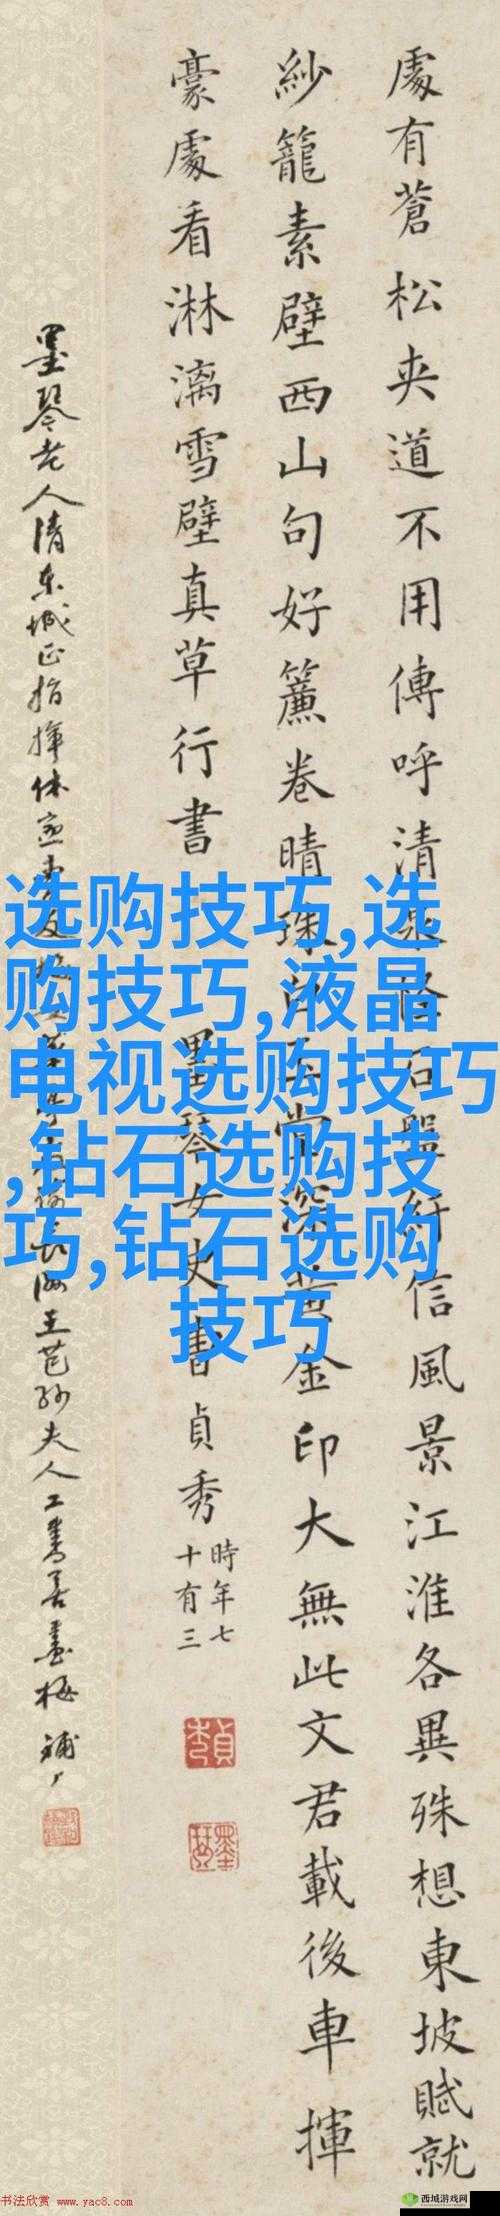 處有蒼松夾道不用傳呼清泉除石磐紆信風景江淮各異殊想東坡賦就
紗籠素壁西山句好簾卷晴珠白玉堂深黃金印大無此文君載後車揮
豪處看淋漓雪壁真草行書
墨琴女史書貞秀
時年七
十有三
貞秀
墨琴
墨琴老人清東城正指揮休
長洲王芑孙夫人工書善畫梅
选购技巧,选
购技巧,液晶
电视选购技巧
,钻石选购技
巧,钻石选购
技巧
书法欣赏 www.yac8.com
西城游戏网